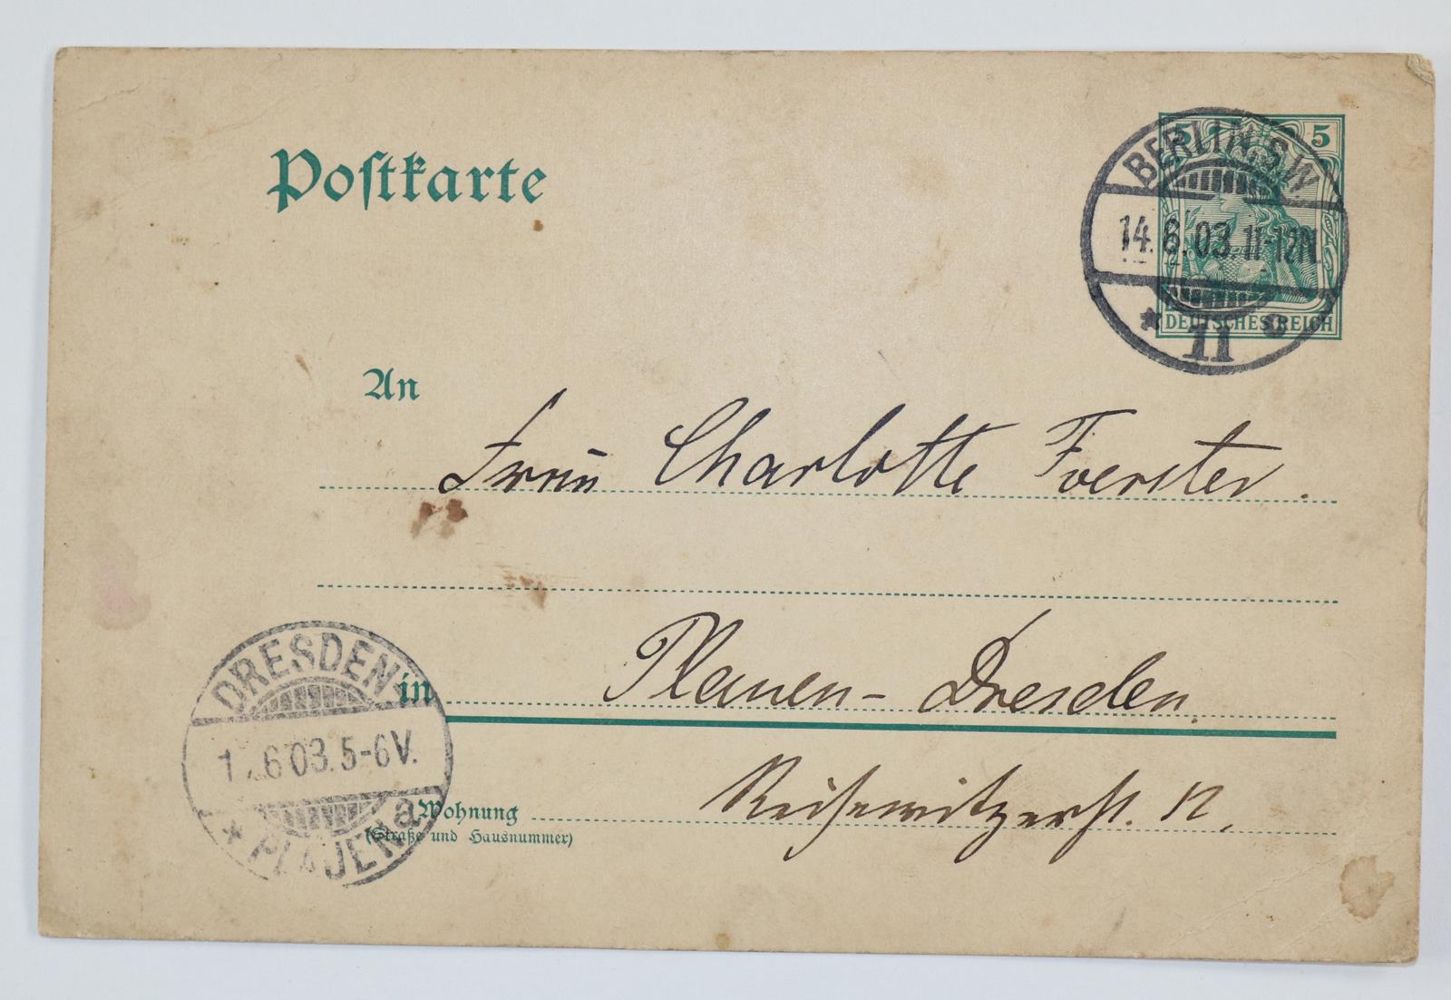 Postkarte
5 5
BERLIN. S.W.
14. 6. 03. 11-12N.
DEUTSCHES REICH
* 11
An
Frau Charlotte Foerster.
in Plauen - Dresden.
Wohnung Reisewitzerstr.
(Straße und Hausnummer)
DRESDEN
6 03. 5-6V.
* PLAUEN a